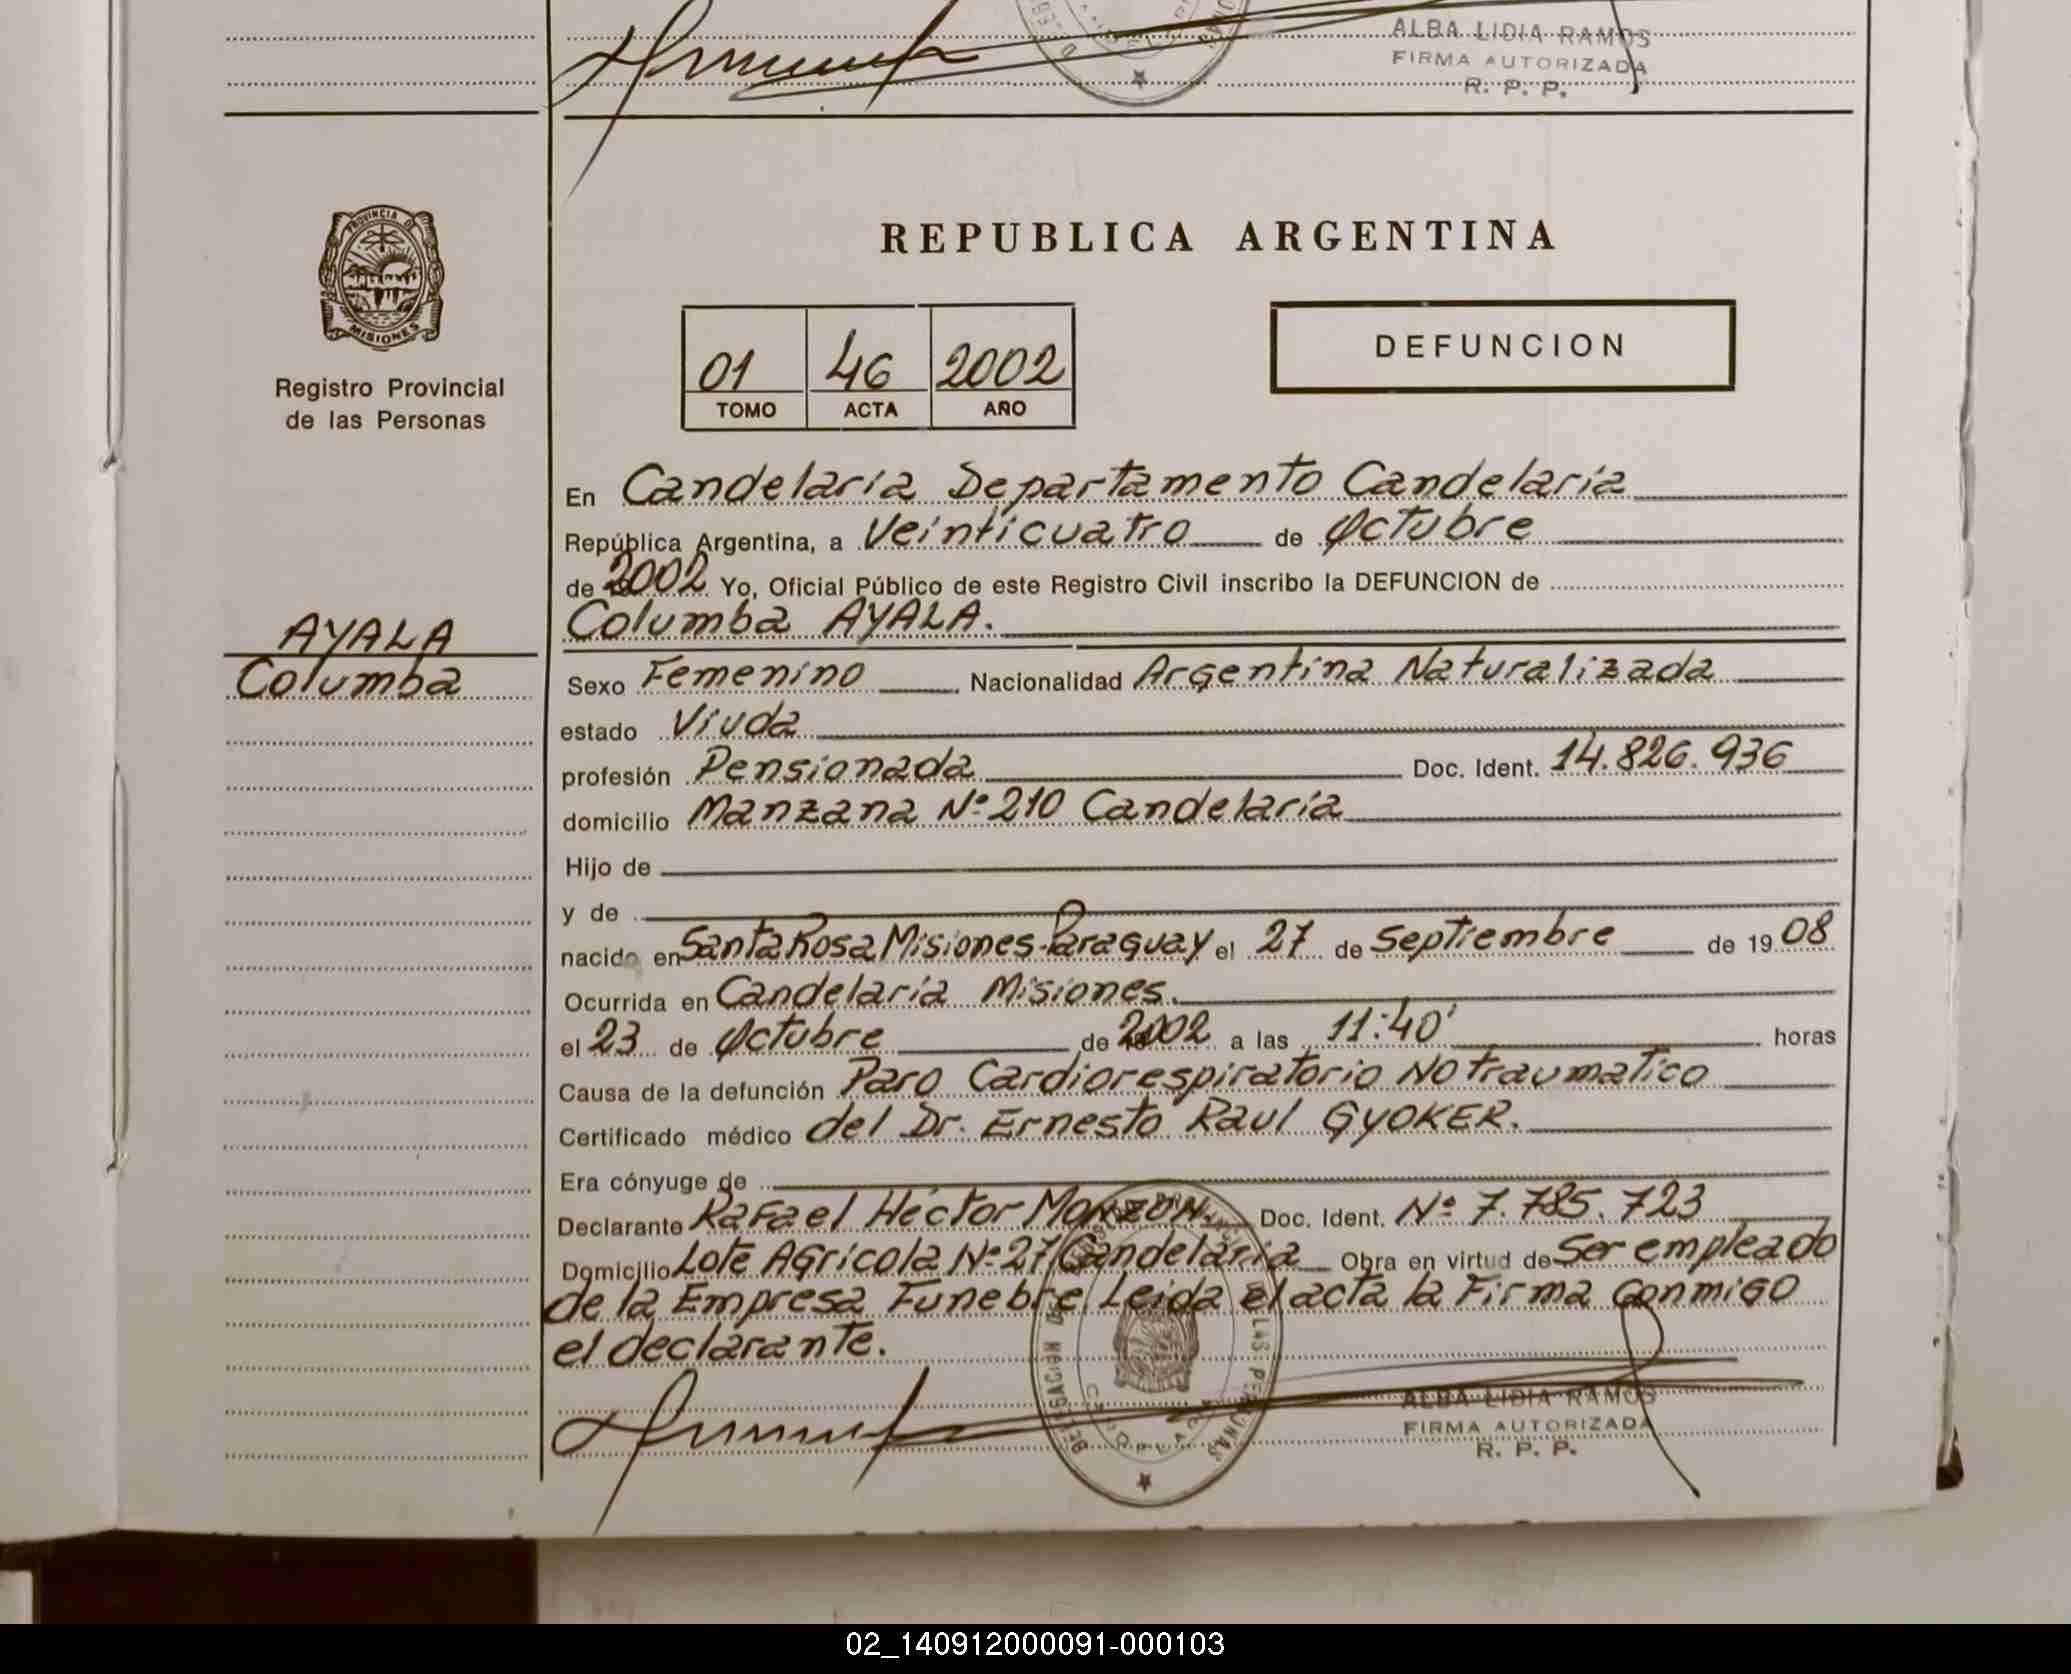 ALBA LIDIA RAMOS
FIRMA AUTORIZADA
R. P. P.
PROVINCIA DE
MISIONES
Registro Provincial
de las Personas
REPUBLICA ARGENTINA
01 46 2002
TOMO ACTA AÑO
DEFUNCION
En Candelaria Departamento Candelaria
República Argentina, a Veinticuatro de Octubre
de 2002 Yo, Oficial Público de este Registro Civil inscribo la DEFUNCION de
Columba AYALA.
AYALA
Columba
Sexo Femenino Nacionalidad Argentina Naturalizada
estado Viuda
profesión Pensionada Doc. Ident. 14.826.936
domicilio Manzana Nº 210 Candelaria
Hijo de
y de
nacido en Santa Rosa Misiones Paraguay el 27 de Septiembre de 1908
Ocurrida en Candelaria Misiones.
el 23 de Octubre de 2002 a las 11:40' horas
Causa de la defunción Paro Cardiorespiratorio No traumatico
Certificado médico del Dr. Ernesto Raul GYOKER.
Era cónyuge de
Declarante Rafael Héctor MONZON. Doc. Ident. Nº 7.785.723
Domicilio Lote Agricola Nº 27 Candelaria Obra en virtud de Ser empleado
de la Empresa Funebre Leida el acta la Firma Conmigo
el declarante.
DELEGACION DE LAS PERSONAS
ALBA LIDIA RAMOS
FIRMA AUTORIZADA
R. P. P.
02_140912000091-000103